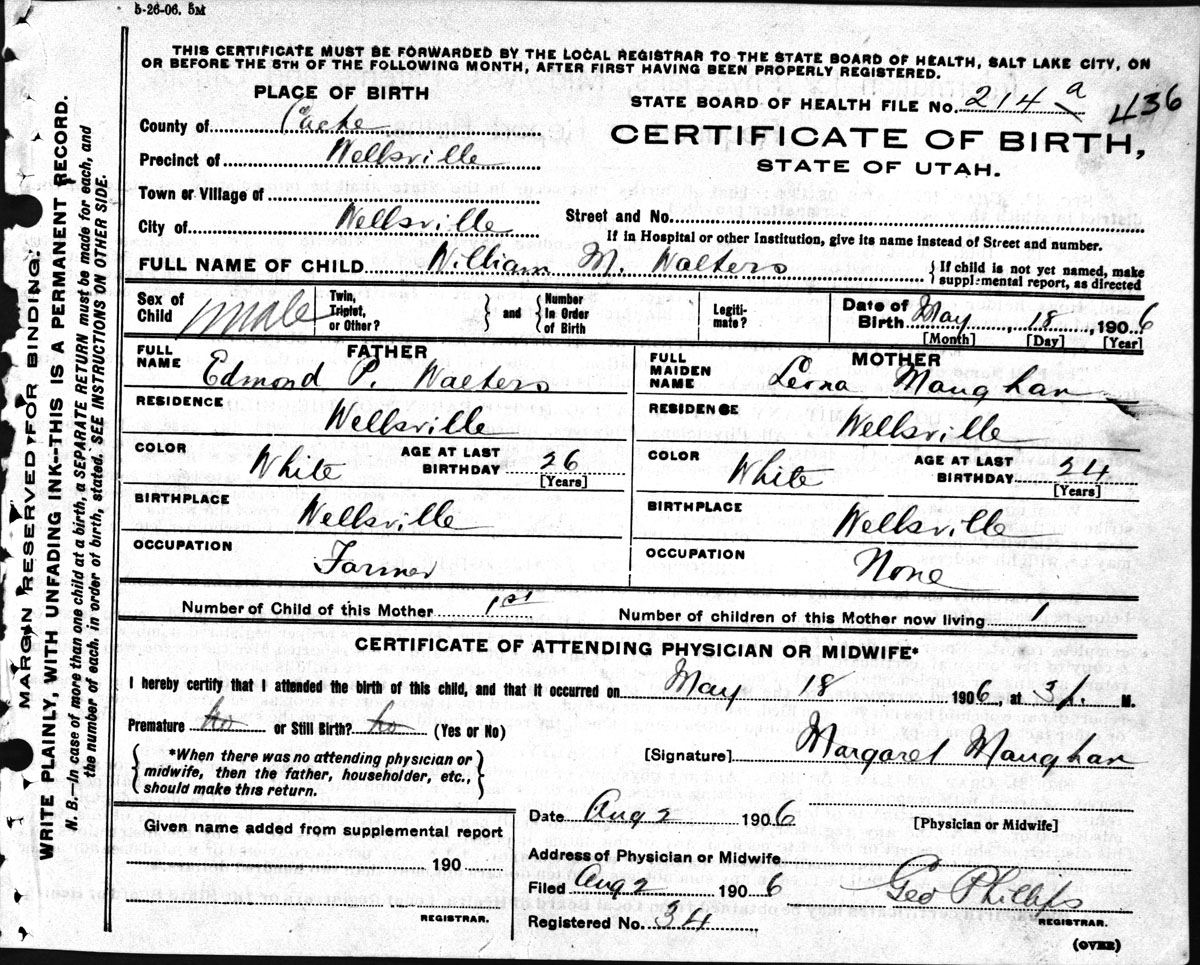 5-26-06. 5M
THIS CERTIFICATE MUST BE FORWARDED BY THE LOCAL REGISTRAR TO THE STATE BOARD OF HEALTH, SALT LAKE CITY, ON
OR BEFORE THE 5TH OF THE FOLLOWING MONTH, AFTER FIRST HAVING BEEN PROPERLY REGISTERED.
PLACE OF BIRTH
STATE BOARD OF HEALTH FILE NO. 214 a 436
County of Cache
CERTIFICATE OF BIRTH,
Precinct of Wellsville
STATE OF UTAH.
Town or Village of
City of Wellsville
Street and No.
If in Hospital or other Institution, give its name instead of Street and number.
FULL NAME OF CHILD William M. Walters { If child is not yet named, make
supplemental report, as directed
Sex of
Child male
Twin,
Triplet,
or Other? } and { Number
in Order
of Birth
Legiti-
mate?
Date of
Birth May, 18, 1906
[Month] [Day] [Year]
FATHER
FULL
NAME Edmond P. Walters
RESIDENCE
Wellsville
COLOR
White
AGE AT LAST
BIRTHDAY 26
[Years]
BIRTHPLACE
Wellsville
OCCUPATION
Farmer
MOTHER
FULL
MAIDEN
NAME Leona Maughan
RESIDENCE
Wellsville
COLOR
White
AGE AT LAST
BIRTHDAY 24
[Years]
BIRTHPLACE
Wellsville
OCCUPATION
None
Number of Child of this Mother 1st Number of children of this Mother now living 1
CERTIFICATE OF ATTENDING PHYSICIAN OR MIDWIFE*
I hereby certify that I attended the birth of this child, and that it occurred on May 18 1906, at 3 M.
Premature no or Still Birth? no (Yes or No)
{ *When there was no attending physician or
midwife, then the father, householder, etc.,
should make this return. }
[Signature] Margaret Maughan
[Physician or Midwife]
Given name added from supplemental report
190
REGISTRAR.
Date Aug 2 1906
Address of Physician or Midwife
Filed Aug 2 1906
Geo Phillips
REGISTRAR.
Registered No. 34
(OVER)
MARGIN RESERVED FOR BINDING.
WRITE PLAINLY, WITH UNFADING INK—THIS IS A PERMANENT RECORD.
N. B.—In case of more than one child at a birth, a SEPARATE RETURN must be made for each, and
the number of each, in order of birth, stated. SEE INSTRUCTIONS ON OTHER SIDE.